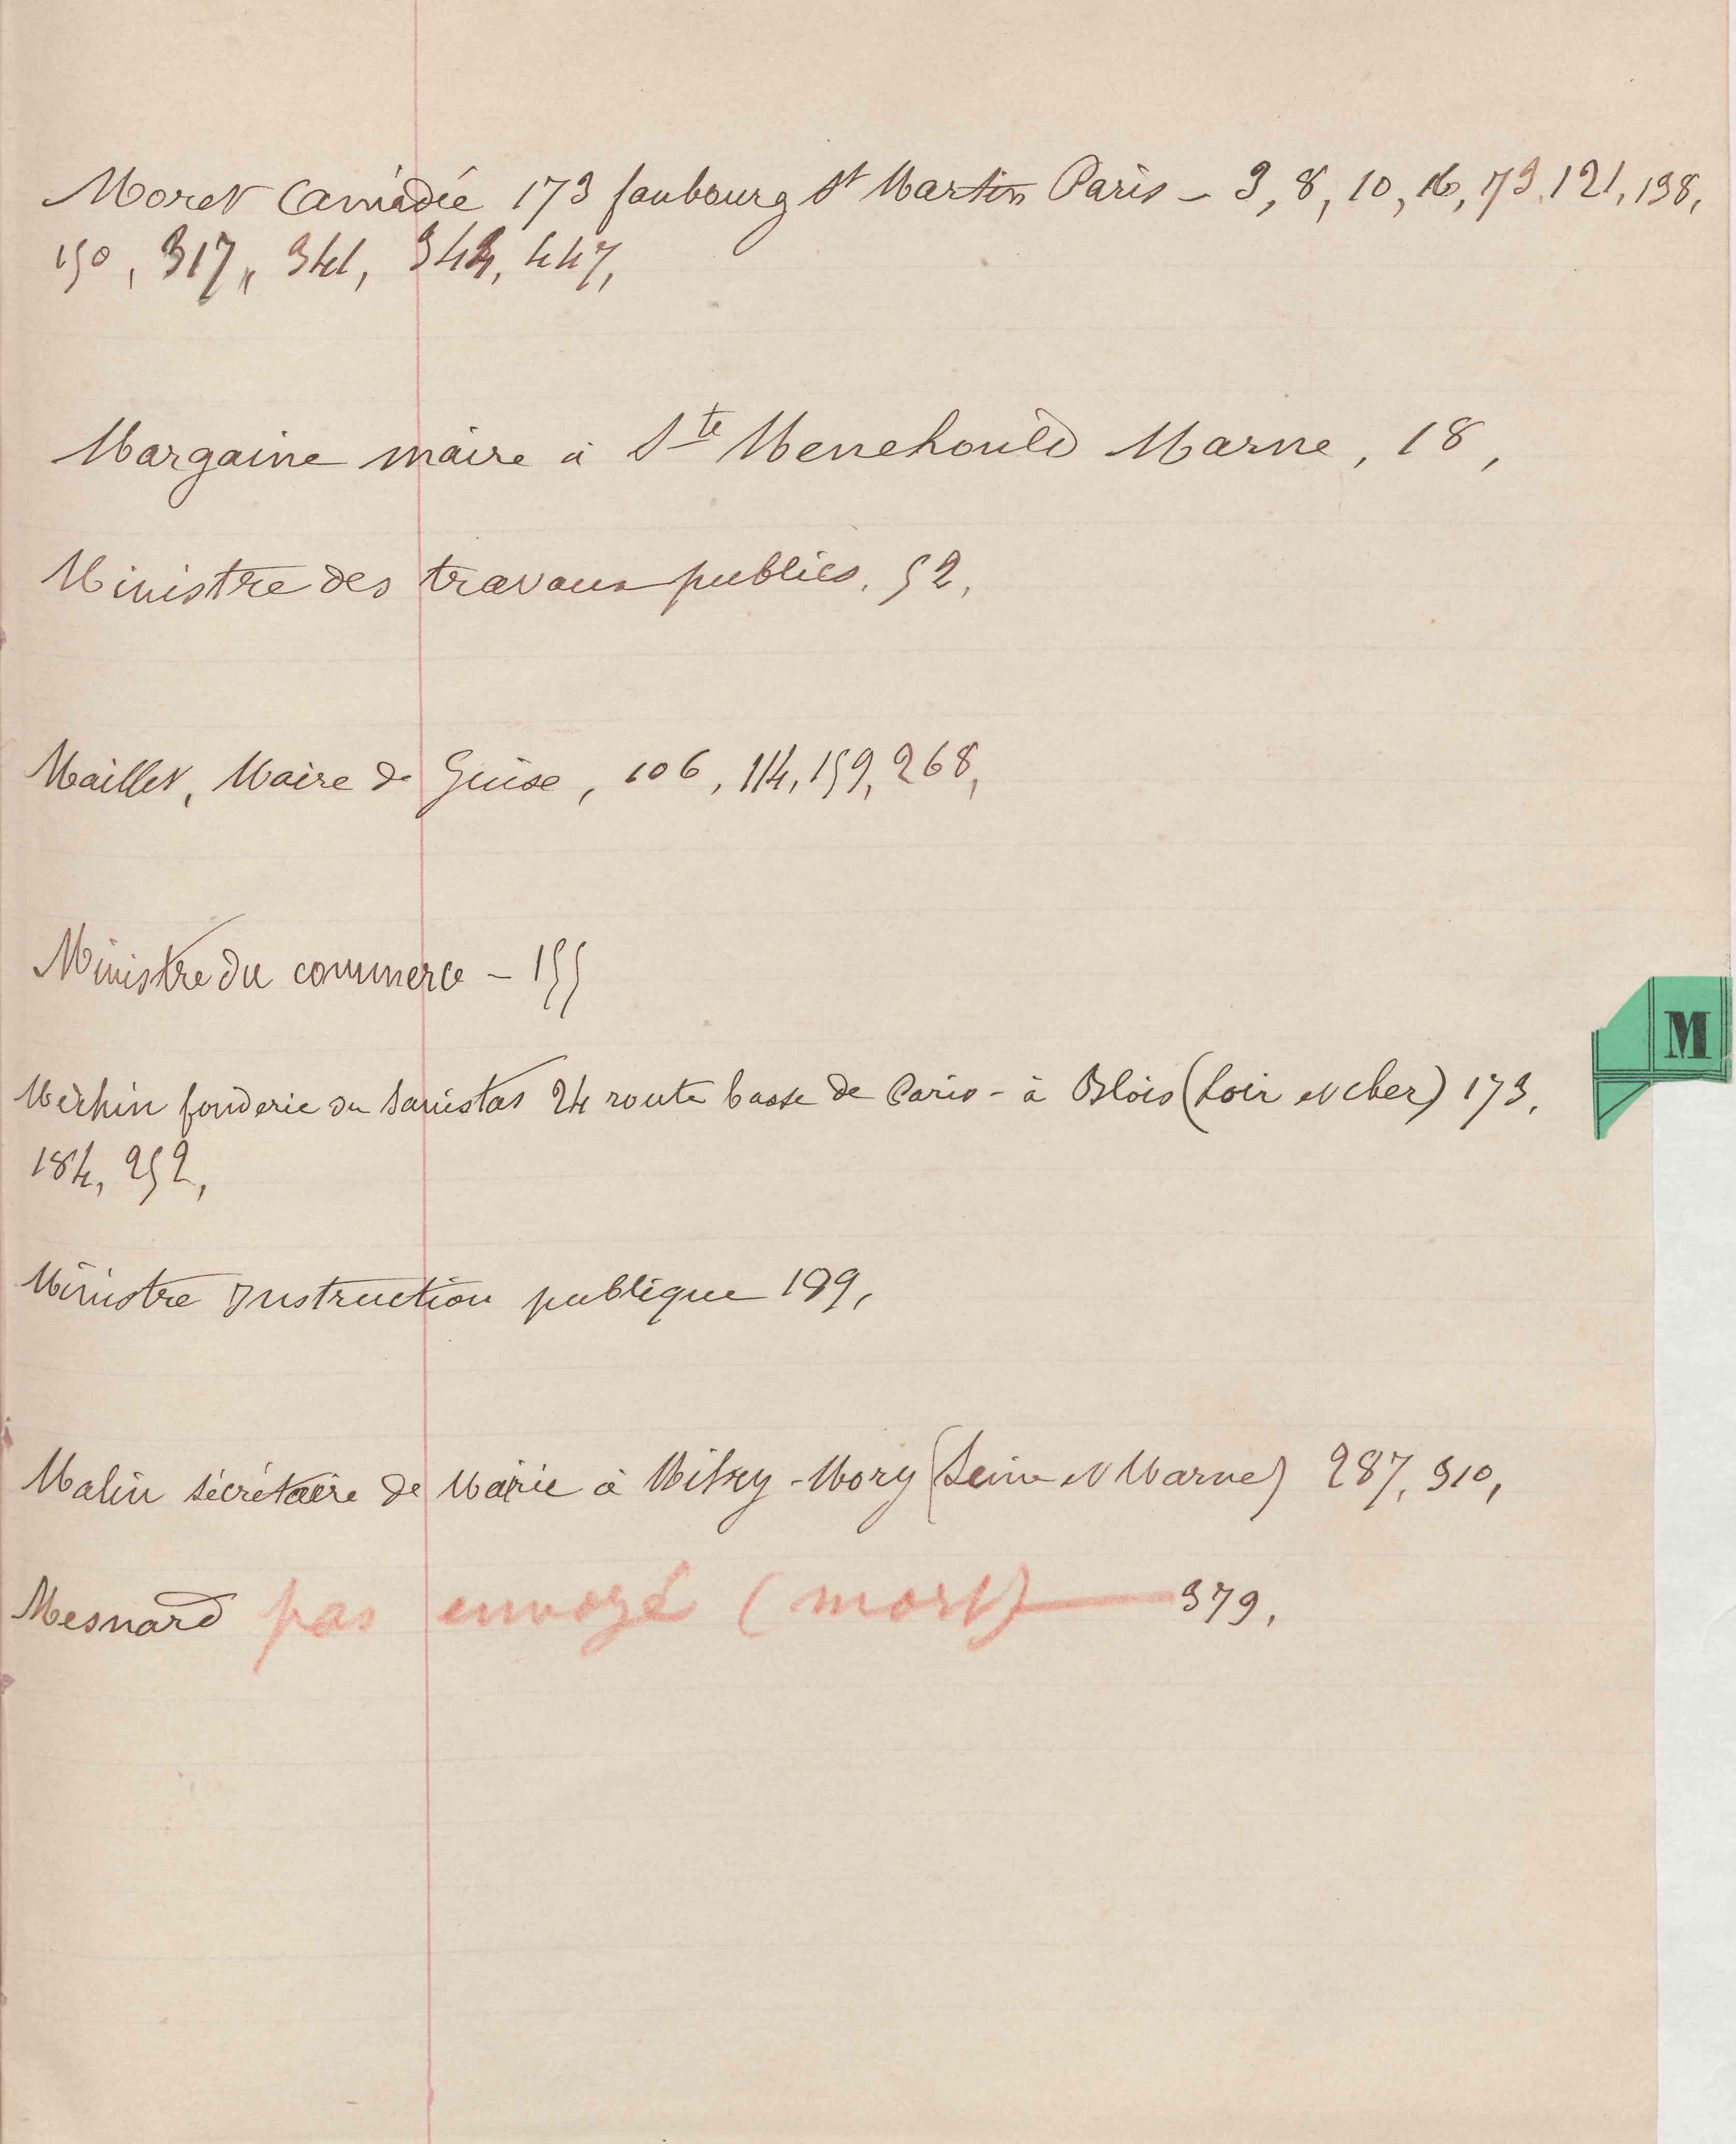 Moret Amédée 173 faubourg St Martin Paris – 3, 8, 10, 16, 73, 121, 138,
150, 317, 341, 344, 447,
Margaine maire à Ste Menehould Marne, 18,
Ministre des travaux publics. 52,
Maillet, Maire de Guise, 106, 114, 159, 268,
Ministre du commerce – 155
M
Méchin fonderie du sanistas 24 route basse de Paris – à Blois (Loir et cher) 173,
184, 252,
Ministre Instruction publique 199,
Malin sécrétaire de Mairie à Mitry-Mory (Seine et Marne) 287, 310,
Mesnard pas envoyé (mort) — 379,